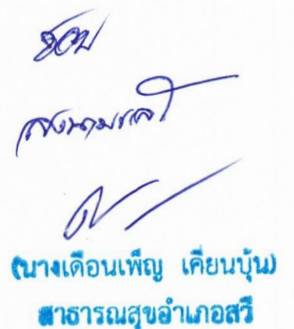 ชอบ
ลงนามแล้ว
(นางเดือนเพ็ญ เคียนบุ้น)
สาธารณสุขอำเภอสวี